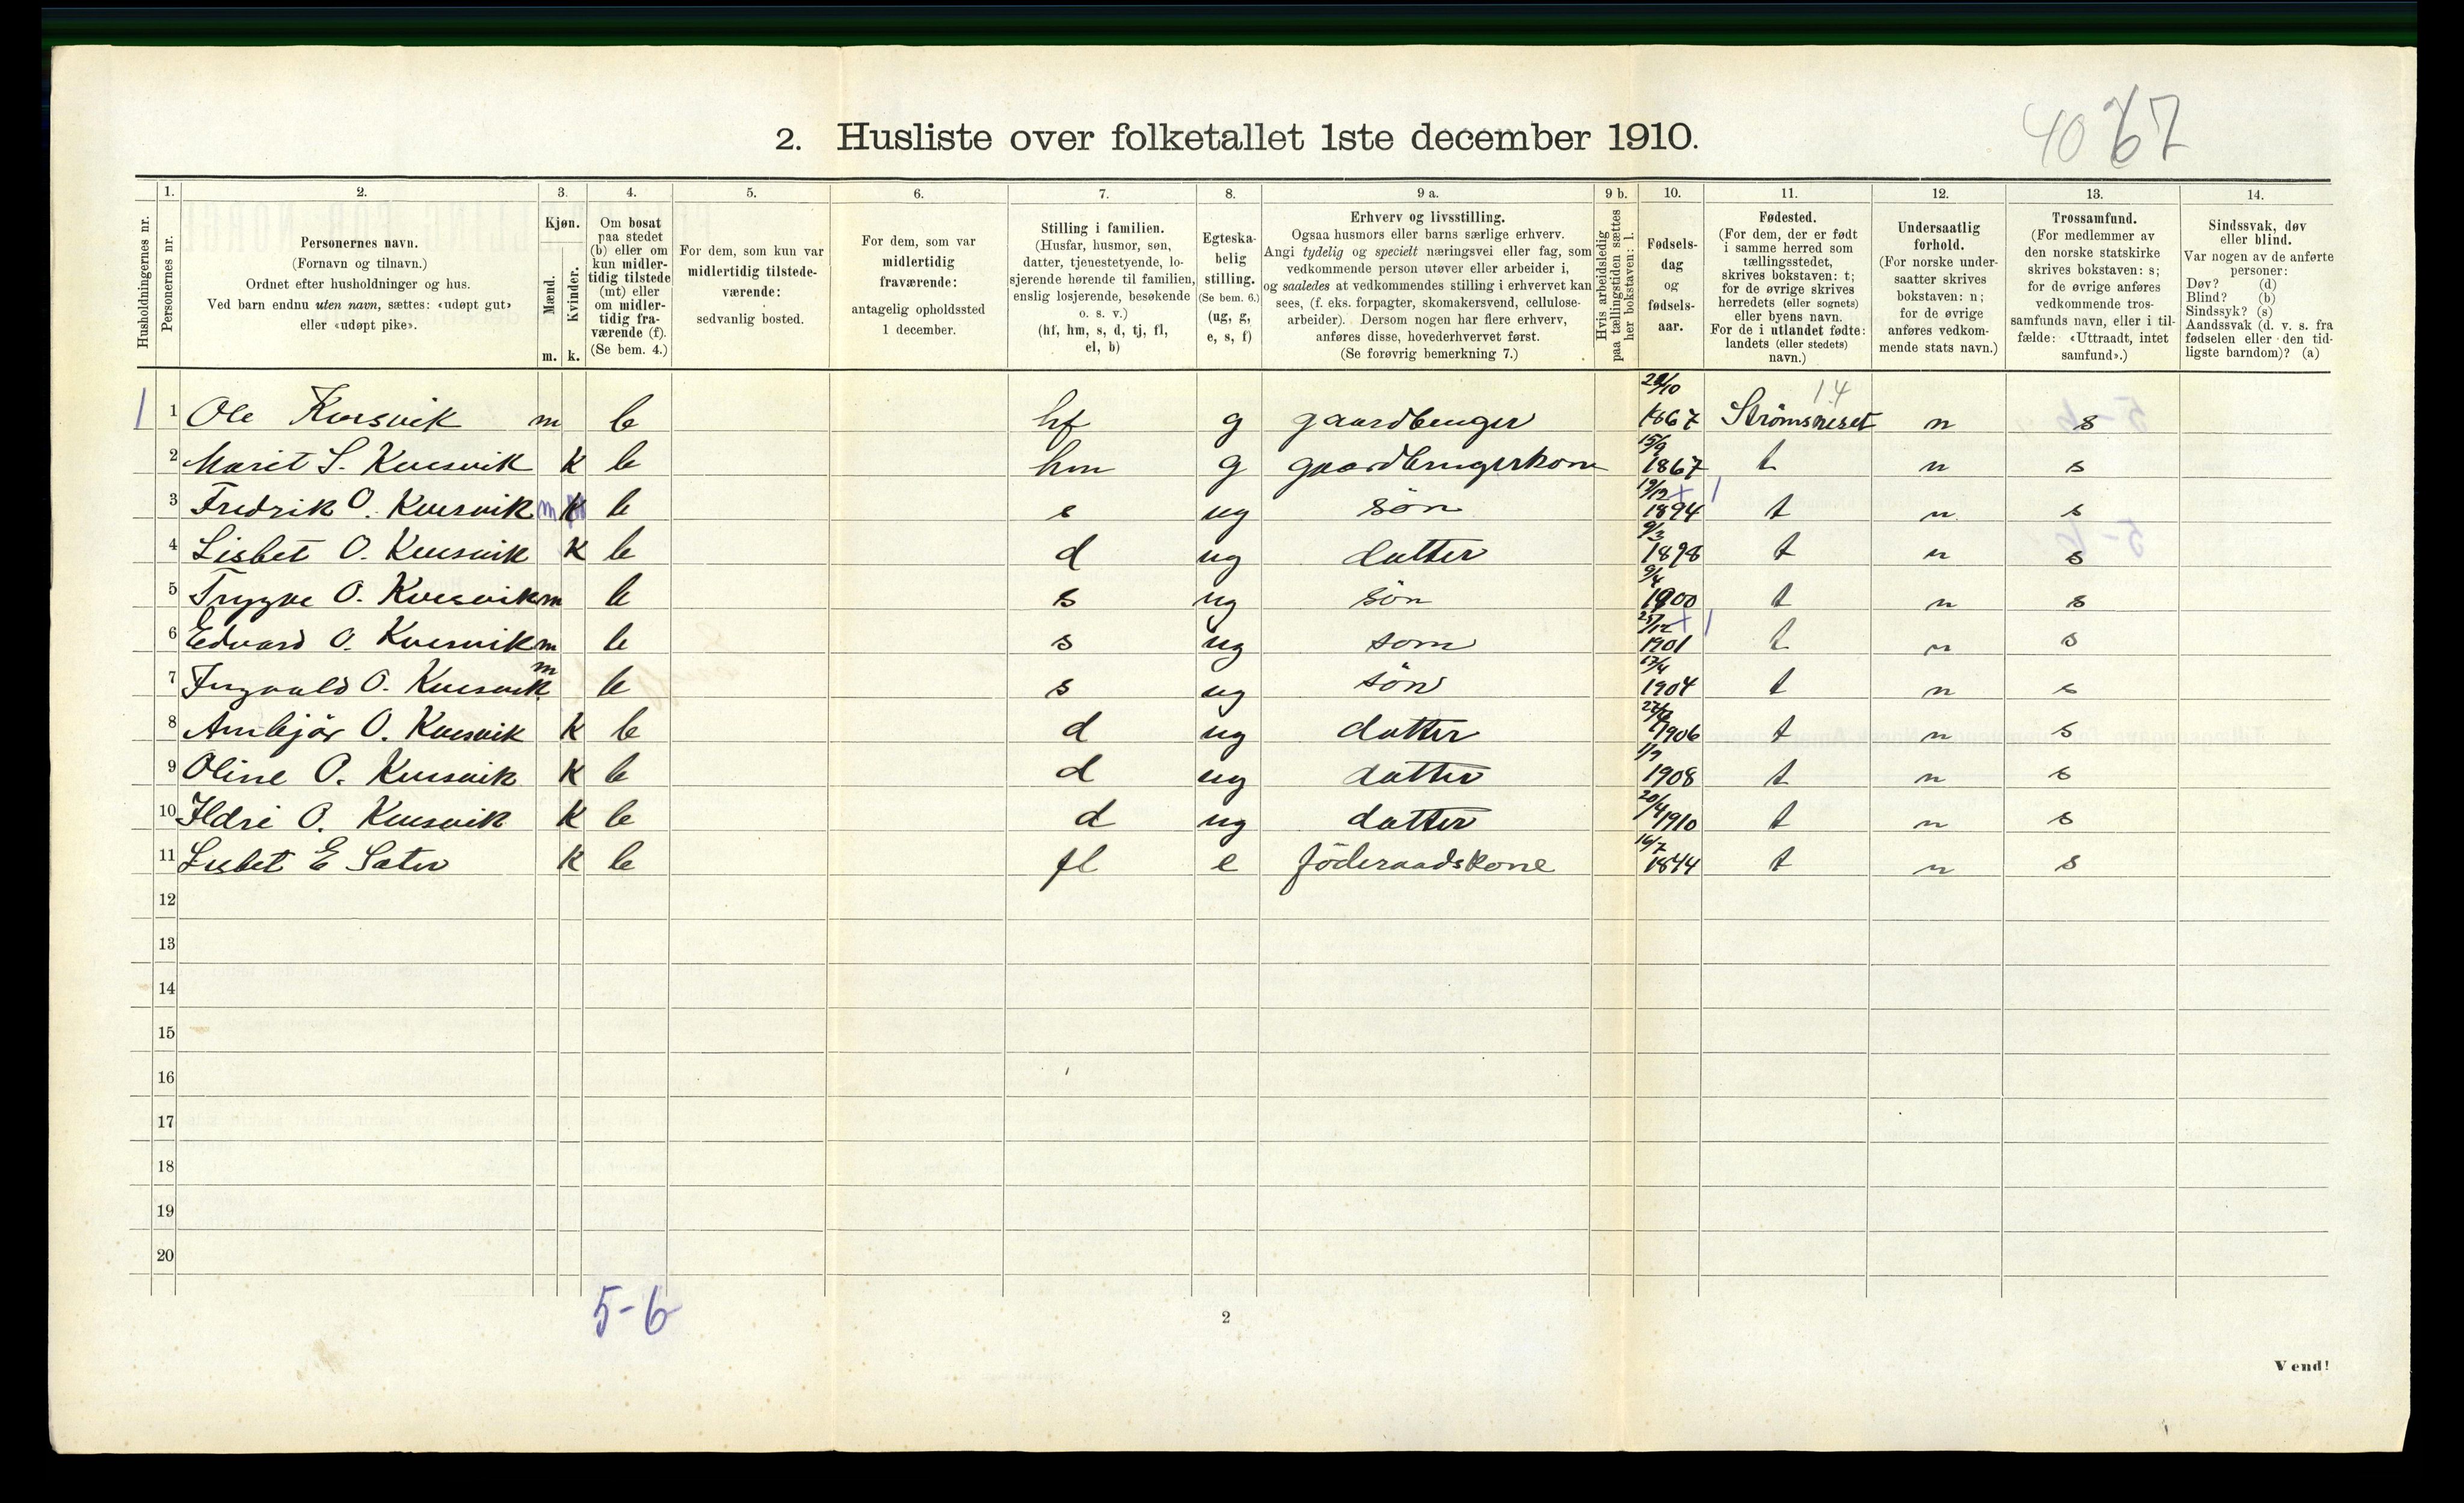 4067
2. Husliste over folketallet 1ste december 1910.
Husholdningernes nr.
1. Personernes nr.
2. Personernes navn.
(Fornavn og tilnavn.)
Ordnet efter husholdninger og hus.
Ved barn endnu uten navn, sættes: «udøpt gut»
eller «udøpt pike».
3. Kjøn.
Mænd. m.
Kvinder. k.
4. Om bosat
paa stedet
(b) eller om
kun midler-
tidig tilstede
(mt) eller
om midler-
tidig fra-
værende (f).
(Se bem. 4.)
5. For dem, som kun var
midlertidig tilstede-
værende:
sedvanlig bosted.
6. For dem, som var
midlertidig
fraværende:
antagelig opholdssted
1 december.
7. Stilling i familien.
(Husfar, husmor, søn,
datter, tjenestetyende, lo-
sjerende hørende til familien,
enslig losjerende, besøkende
o. s. v.)
(hf, hm, s, d, tj, fl,
el, b)
8. Egteska-
belig
stilling.
(Se bem. 6.)
(ug, g,
e, s, f)
9 a. Erhverv og livsstilling.
Ogsaa husmors eller barns særlige erhverv.
Angi tydelig og specielt næringsvei eller fag, som
vedkommende person utøver eller arbeider i,
og saaledes at vedkommendes stilling i erhvervet kan
sees, (f. eks. forpagter, skomakersvend, cellulose-
arbeider). Dersom nogen har flere erhverv,
anføres disse, hovederhvervet først.
(Se forøvrig bemerkning 7.)
9 b. Hvis arbeidsledig
paa tællingstiden sættes
her bokstaven: l.
10. Fødsels-
dag
og
fødsels-
aar.
11. Fødested.
(For dem, der er født
i samme herred som
tællingsstedet,
skrives bokstaven: t;
for de øvrige skrives
herredets (eller sognets)
eller byens navn.
For de i utlandet fødte:
landets (eller stedets)
navn.)
12. Undersaatlig
forhold.
(For norske under-
saatter skrives
bokstaven: n;
for de øvrige
anføres vedkom-
mende stats navn.)
13. Trossamfund.
(For medlemmer av
den norske statskirke
skrives bokstaven: s;
for de øvrige anføres
vedkommende tros-
samfunds navn, eller i til-
fælde: «Uttraadt, intet
samfund».)
14. Sindssvak, døv
eller blind.
Var nogen av de anførte
personer:
Døv? (d)
Blind? (b)
Sindssyk? (s)
Aandssvak (d. v. s. fra
fødselen eller den tid-
ligste barndom)? (a)
14
1 1 Ole Kvesvik m b hf g gaardbruger 1867 Strømsneset n s
2 Marit S. Kvesvik k b hm g gaardbrugerkone 15/9 1867 t n s
3 Fredrik O. Kvesvik m k b s ug søn 19/12 1894 t n s
4 Lisbet O. Kvesvik k b d ug datter 9/3 1898 t n s
5 Trygve O. Kvesvik m b s ug søn 9/4 1900 t n s
6 Edvard O. Kvesvik m b s ug søn 1901 t n s
7 Ingvald O. Kvesvik m b s ug søn 17/4 1904 t n s
8 Anbjør O. Kvesvik k b d ug datter 1906 t n s
9 Oline O. Kvesvik k b d ug datter 1908 t n s
10 Ildri O. Kvesvik k b d ug datter 20/4 1910 t n s
11 Lisbet E Sater k b fl e føderaadskone 16/7 1844 t n s
12
13
14
15
16
17
18
19
20
5-6
2
Vend!